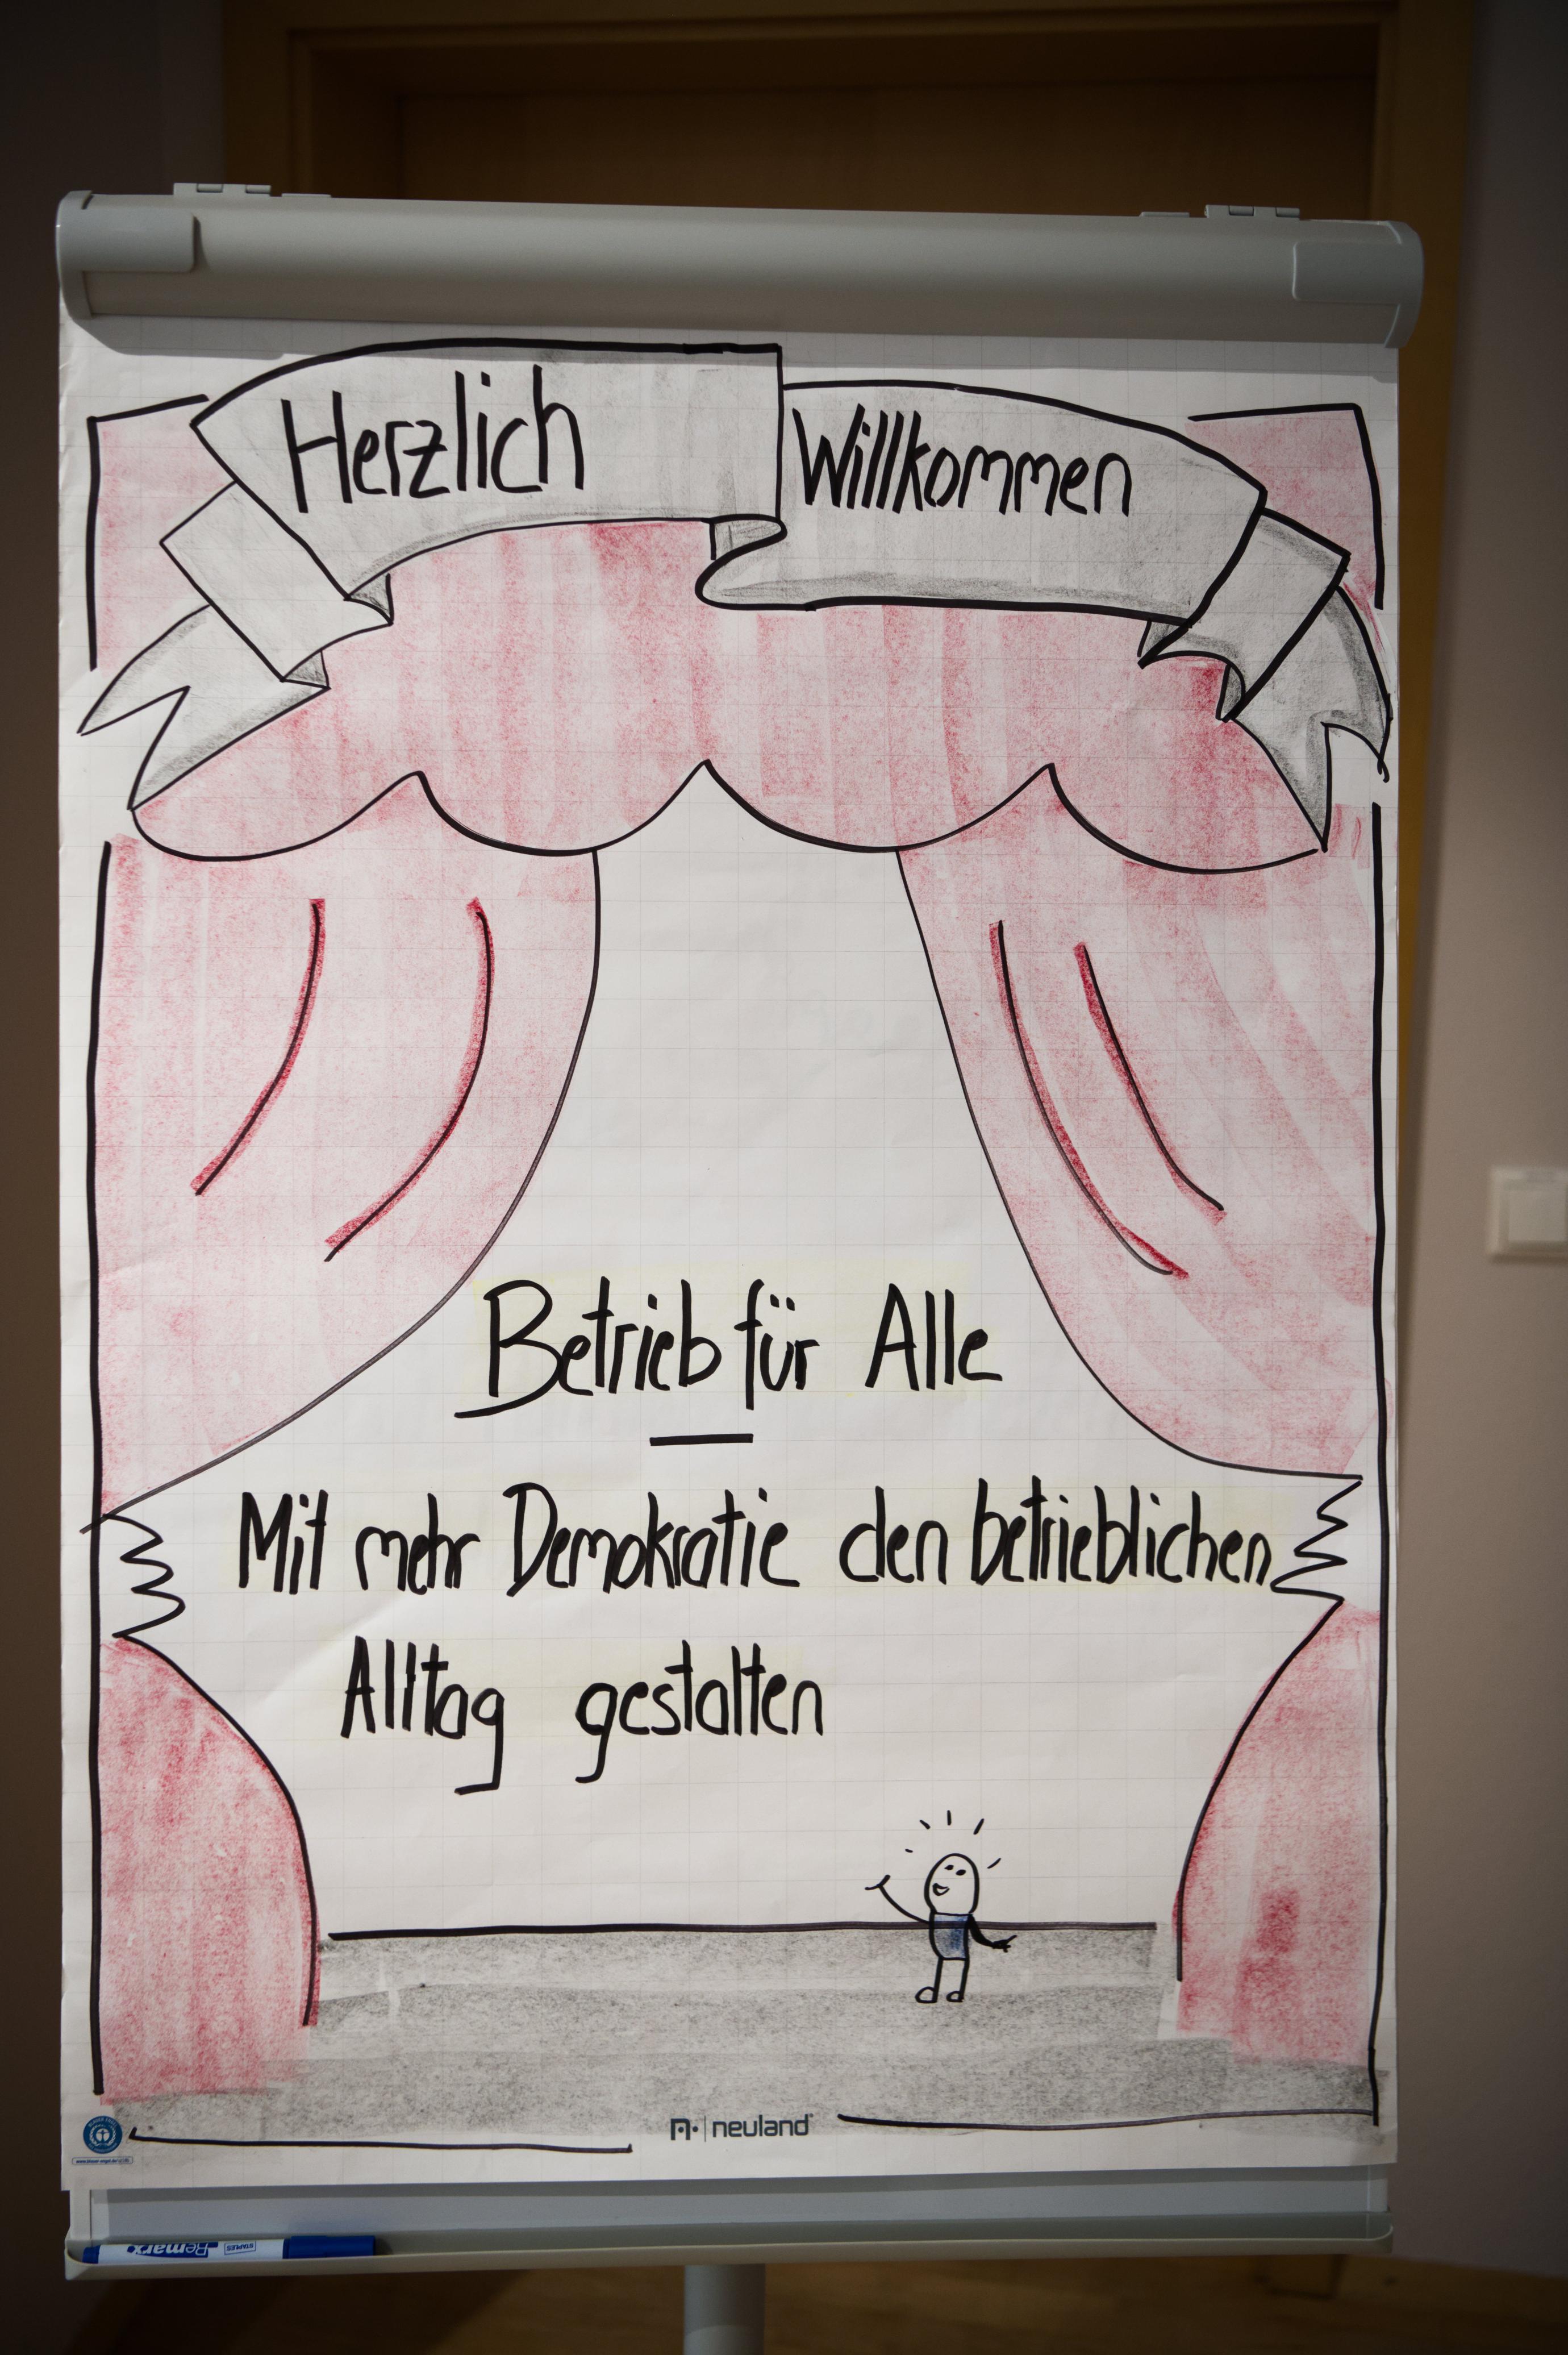 Herzlich Willkommen
Betrieb für Alle
—
Mit mehr Demokratie den betrieblichen
Alltag gestalten
neuland
STAPLES
Remarx